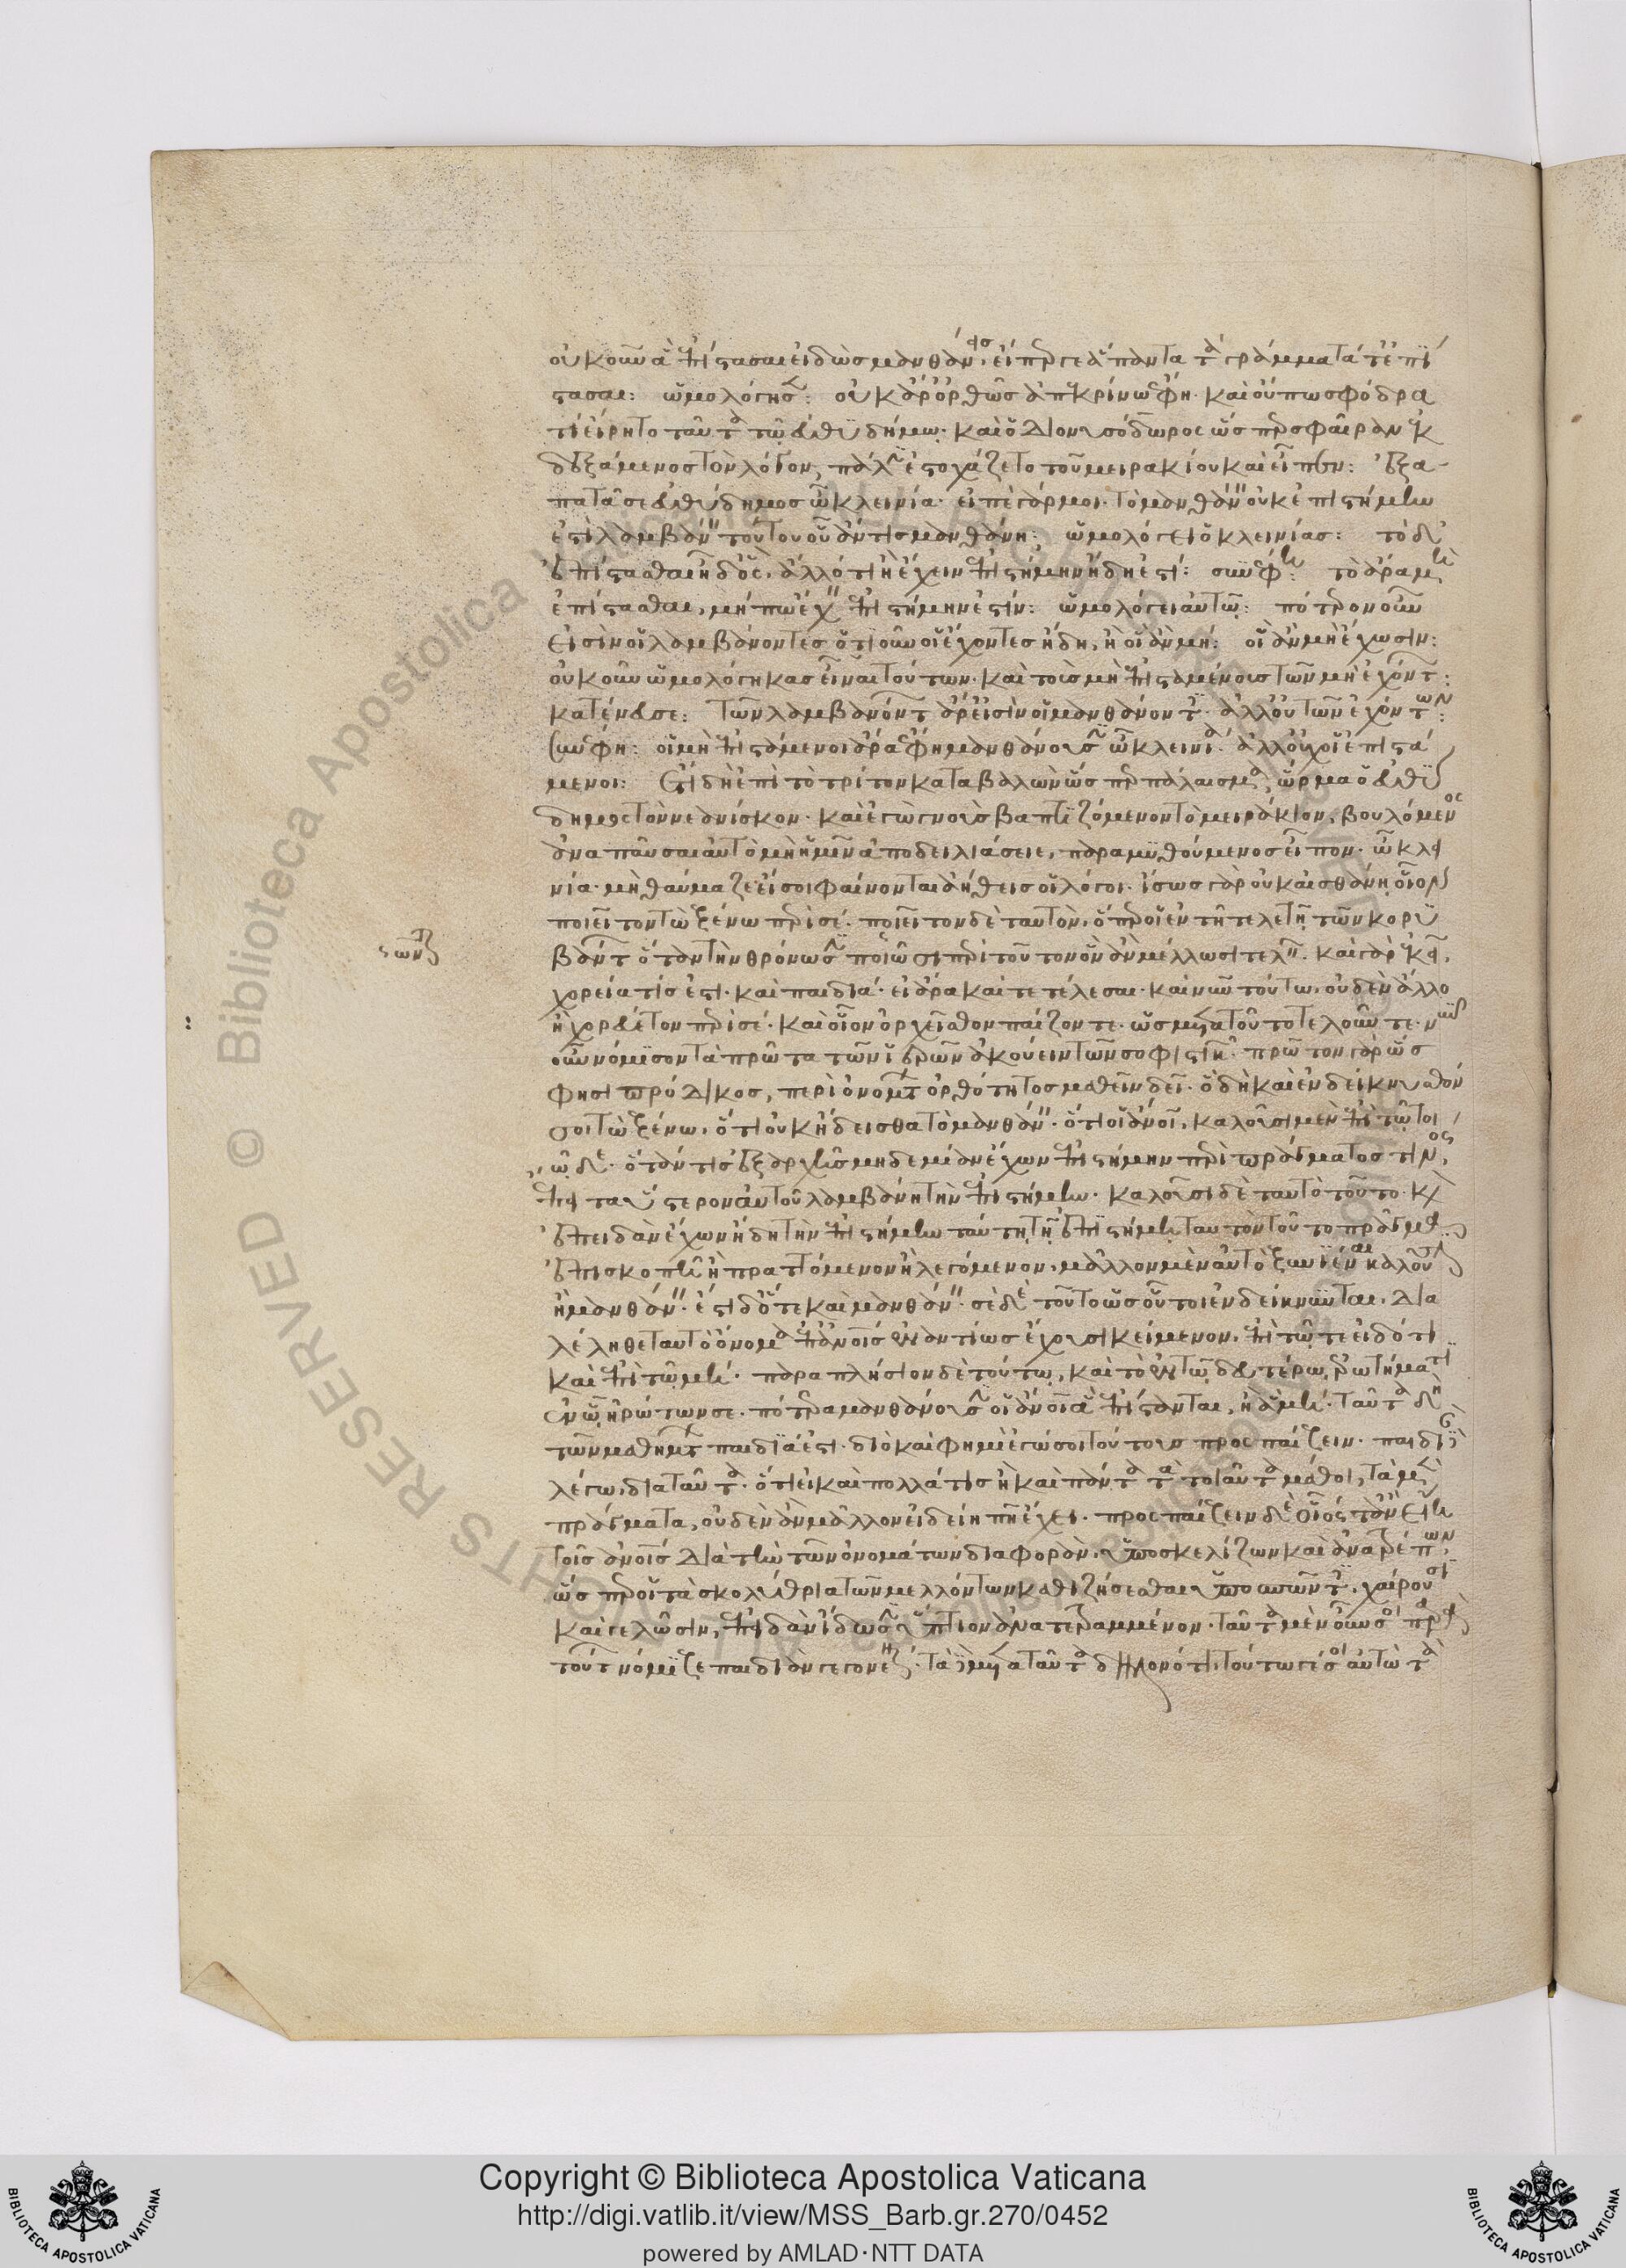 οὐκοῦν ἃ ἐπίστασαι εἰδὼς μανθάνεις, εἴπερ γε ἅπαντα τὰ γράμματά τε ἐπί
στασαι: ὡμολόγησε: οὐκ ἄρα ὀρθῶς ἀπεκρίνω ἔφη. καὶ οὔπω σφόδρα
τι εἴρητο ταῦτα τῷ εὐθυδήμῳ. καὶ ὁ Διονυσόδωρος ὥσπερ σφαῖραν ἐκ
δεξάμενος τὸν λόγον, πάλιν ἐστοχάζετο τοῦ μειρακίου καὶ εἶπεν: ἐξα-
πατᾶ σε εὐθύδημος ὦ κλεινία. εἰπὲ γάρ μοι. τὸ μανθάνειν οὐκ ἐπιστήμην
ἐστὶ λαμβάνειν τούτου οὗ ἄν τις μανθάνη: ὡμολόγει ὁ κλεινίας: τὸ δ'
ἐπίστασθαι ἦ δ' ὅς, ἄλλό τι ἢ ἔχειν ἐπιστήμην ἤδη ἐστί: συνέφη: τὸ ἄρα μὴ
ἐπίστασθαι, μήπω ἔχειν ἐπιστήμην ἐστίν: ὡμολόγει αὐτῷ: πότερον οὖν
εἰσὶν οἱ λαμβάνοντες ὁτιοῦν οἱ ἔχοντες ἤδη, ἢ οἳ ἂν μή: οἳ ἂν μὴ ἔχωσιν:
οὐκοῦν ὡμολόγηκας εἶναι τούτων. καὶ τοὺς μὴ ἐπισταμένους τῶν μὴ ἐχόντων:
κατένευσε: τῶν λαμβανόντων ἄρ' εἰσὶν οἱ μανθάνοντες. ἀλλ' οὐ τῶν ἐχόντων:
συνέφη: οἱ μὴ ἐπιστάμενοι ἄρα ἔφη μανθάνουσιν ὦ κλεινία. ἀλλ' οὐχ οἱ ἐπιστά
μενοι: ἔτι δὴ ἐπὶ τὸ τρίτον καταβαλὼν ὥσπερ πάλαισμα, ὥρμα ὁ εὐθύ
δημος τὸν νεανίσκον. καὶ ἐγὼ γνοὺς βαπτιζόμενον τὸ μειράκιον, βουλόμενος
ἀναπαῦσαι αὐτὸ μὴ ἡμῖν ἀποδειλιάσειε, παραμυθούμενος εἶπον. ὦ κλει
νία. μὴ θαύμαζε εἴ σοι φαίνονται ἀήθεις οἱ λόγοι. ἴσως γὰρ οὐκ αἰσθάνη οἷον
ποιεῖτον τὼ ξένω περὶ σέ. ποιεῖτον δὲ ταυτόν, ὅπερ οἱ ἐν τῆ τελετῆ τῶν κορυ
βάντων ὅταν τὴν θρόνωσιν ποιῶσι περὶ τοῦτον ὃν ἂν μέλλωσι τελεῖν. καὶ γὰρ ἐκεῖ,
χορεία τίς ἐστι. καὶ παιδιά. εἰ ἄρα καὶ τετέλεσαι. καὶ νῦν τούτω, οὐδὲν ἄλλο
ἢ χορεύετον περὶ σέ. καὶ οἷον ὀρχεῖσθον παίζοντε. ὡς μετὰ τοῦτο τελοῦντε. νῦν
οὖν νόμισον τὰ πρῶτα τῶν ἱερῶν ἀκούειν τῶν σοφιστικῶν. πρῶτον γὰρ ὥς
φησι πρόδικος, περὶ ὀνομάτων ὀρθότητος μαθεῖν δεῖ. ὃ δὴ καὶ ἐνδείκνυσθόν
σοι τὼ ξένω. ὅτι οὐκ ἤδεισθα τὸ μανθάνειν. ὅτι οἱ ἄνθρωποι, καλοῦσι μὲν ἐπὶ τῷ τοι
ῶδε. ὅταν τις ἐξαρχῆς μηδεμίαν ἔχων ἐπιστήμην περὶ πράγματός τινος,
ἔπειτα ὕστερον αὐτοῦ λαμβάνη τὴν ἐπιστήμην. καλοῦσι δὲ ταυτὸ τοῦτο. καὶ
ἐπειδὰν ἔχων ἤδη τὴν ἐπιστήμην ταύτη τῆ ἐπιστήμη ταυτὸν τοῦτο πρᾶγμα
ἐπισκοπῆ ἢ πραττόμενον ἢ λεγόμενον. μᾶλλον μὲν αὐτὸ ξυνιέναι καλοῦσιν
ἢ μανθάνειν. ἔστι δ' ὅτε καὶ μανθάνειν. σὲ δὲ τοῦτο ὡς οὗτοι ἐνδείκνυνται, δια
λέληθε ταυτὸ ὄνομα ἐπ' ἀνθρώποις ἐναντίως ἔχουσι κείμενον. ἐπὶ τῷ τε εἰδότι
καὶ ἐπὶ τῷ μή. παραπλήσιον δὲ τούτω, καὶ τὸ ἐν τῷ δευτέρω ἐρωτήματι
ἐν ᾧ ἠρώτων σε. πότερα μανθάνουσιν οἱ ἄνθρωποι ἃ ἐπίστανται, ἢ ἃ μή. ταῦτα δὴ
τῶν μαθημάτων παιδιά ἐστι. διὸ καὶ φημὶ ἐγώ σοι τούτους προσπαίζειν. παιδιὰν
λέγω, διὰ ταῦτα. ὅτι εἰ καὶ πολλά τις ἢ καὶ πάντα τὰ τοιαῦτα μάθοι, τὰ μὲν
πράγματα, οὐδὲν ἂν μᾶλλον εἰδείη πῆ ἔχει. προσπαίζειν δὲ οἷός τ' ἂν εἴη
τοῖς ἀνθρώποις διὰ τὴν τῶν ὀνομάτων διαφοράν, ὑποσκελίζων καὶ ἀνατρέπων,
ὥσπερ οἱ τὰ σκολύθρια τῶν μελλόντων καθιζήσεσθαι ὑποσπῶντες, χαίρουσι
καὶ γελῶσιν, ἐπειδὰν ἴδωσιν ὕπτιον ἀνατετραμμένον. ταῦτα μὲν οὖν σοι παρὰ
τούτων νόμιζε παιδιὰν γεγονέναι. τὰ δὲ μετὰ ταῦτα δηλονότι τούτω γέ σοι αὐτὼ τὰ